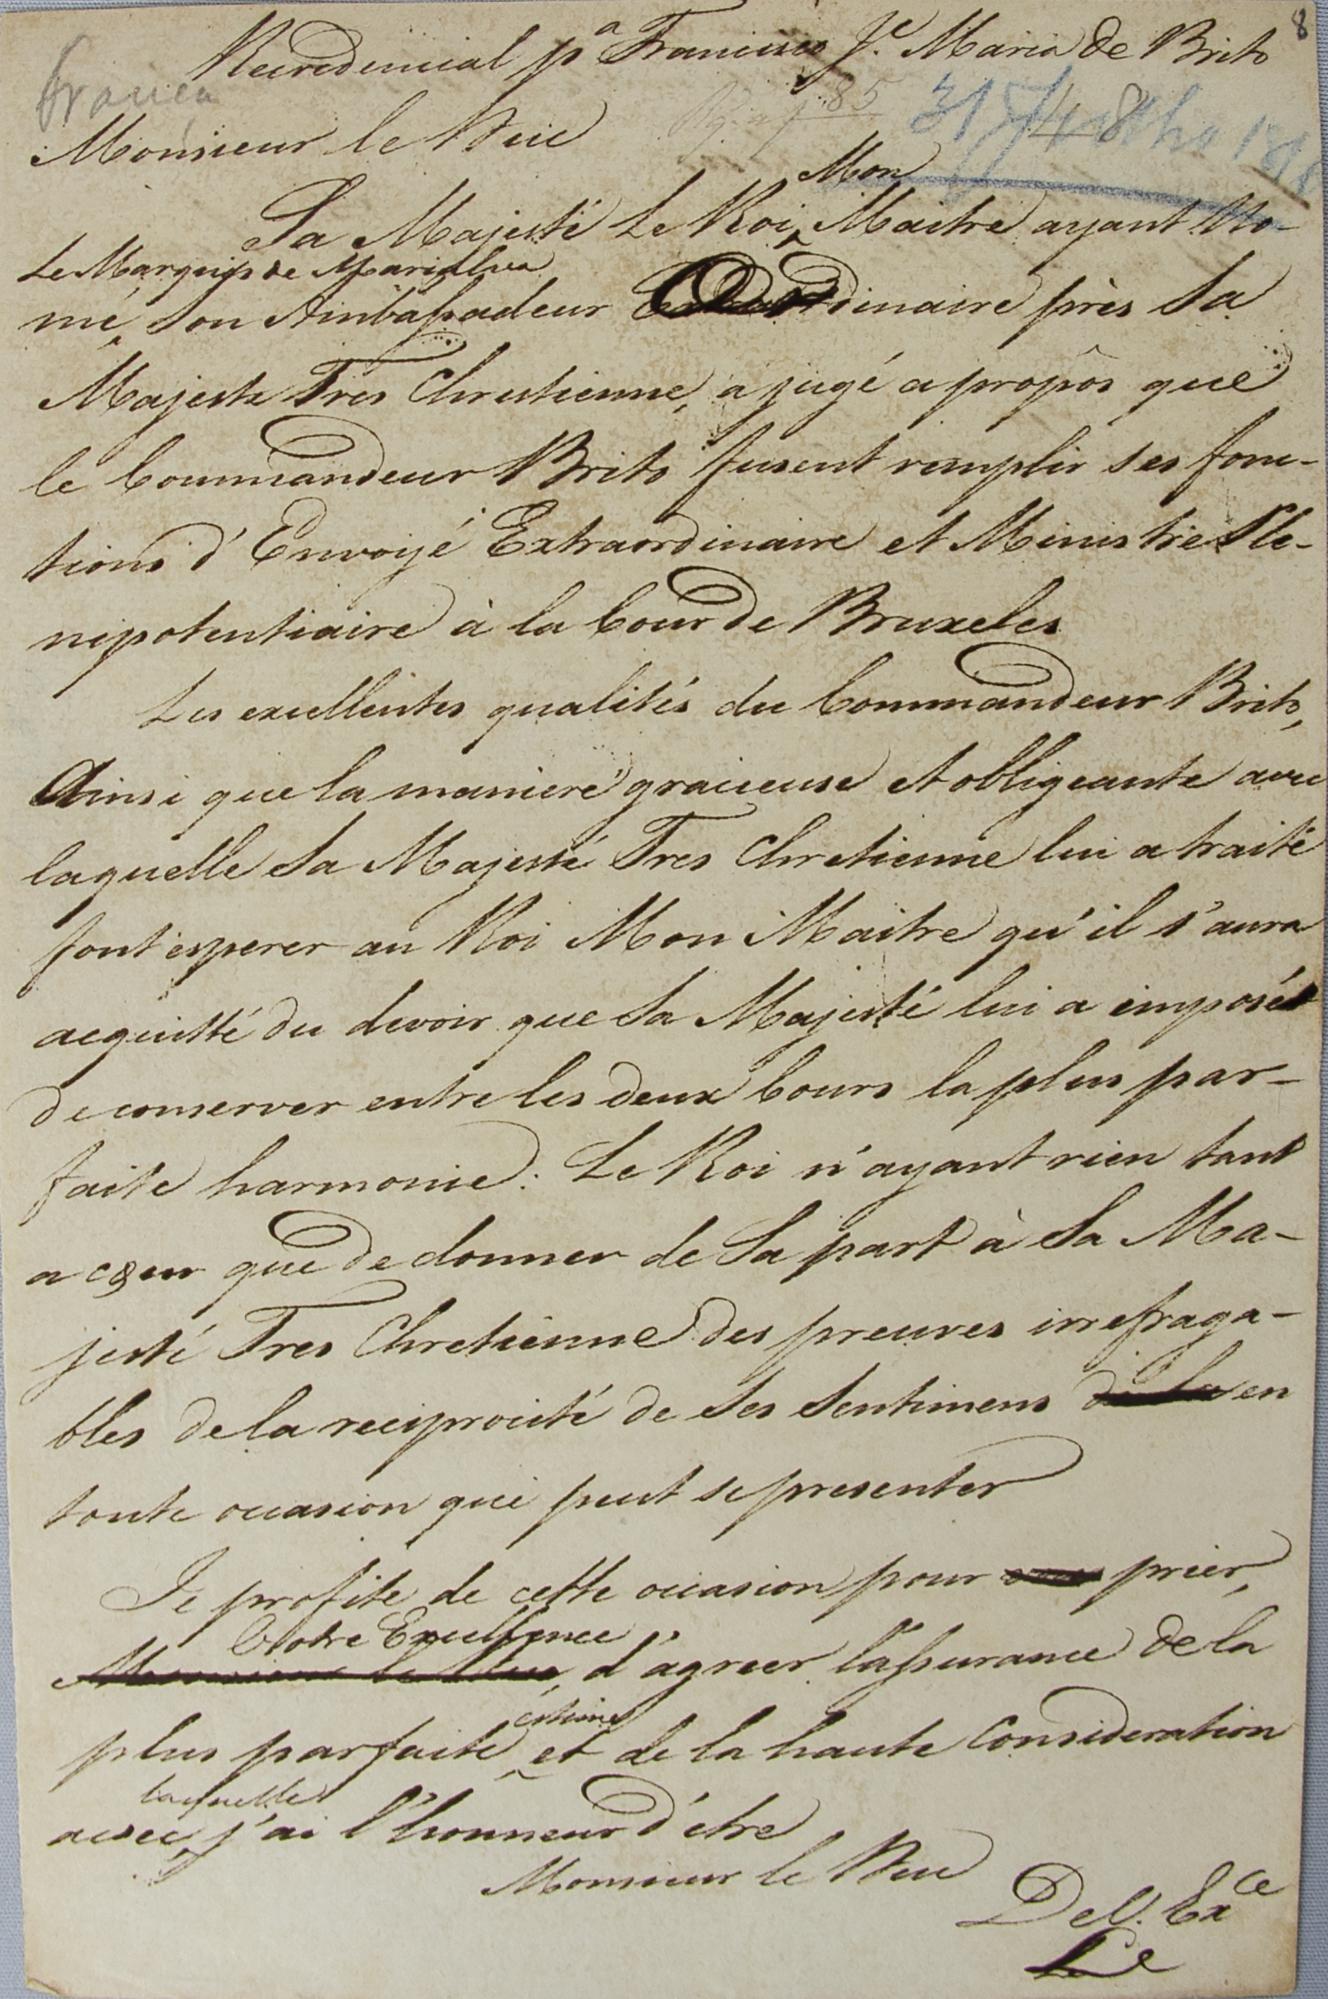 8
Recredencial pª Francisco Jᵉ. Maria de Brito
França
85
Monsieur le Duc
Mon
Sa Majesté Le Roi, Maitre ayant No-
Le Marquis de Marialva
mé, Son Ambassadeur Extraordinaire près Sa
Majeste Tres Chretienne, a jugé a propôs que
le Commandeur Brito fusent remplir ses fonc-
tions d'Envoyé Extraordinaire et Ministre Ple-
nipotentiaire à la Cour de Bruxeles
Les excellentes qualités du Commandeur Brito,
Ainsi que la maniere gracieuse et obligeante avec
laquelle Sa Majesté Tres Chretienne lui a traité
font esperer au Roi Mon Maitre qu'il s'aura
acquitté du devoir que Sa Majesté lui a imposé
de conserver entre les deux Cours la plus par-
faite harmonie: Le Roi n'ayant rien tant
a cœur que de donner de Sa part à Sa Ma-
jesté Tres Chretienne des preuves irrefraga-
bles de la reciprocité de Ses Sentimens de la en
toute occasion qui peut se presenter
Je profite de cette occasion pour prier,
Votre Excellence
Monsieur le Duc, d'agreer l'assurance de la
estime
plus parfaite et de la haute Consideration
laquelle
avec j'ai l'honneur d'étre
Monsieur le Duc
De V. Exᶜᵉ
Le